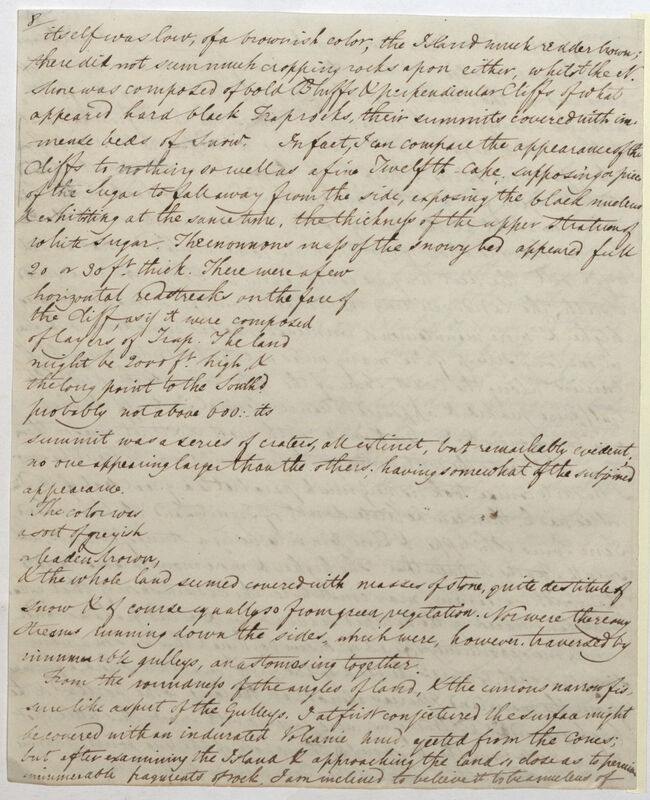 8
itself was low, of a brownish color, the Island much redder brown;
there did not seem much cropping rocks upon either, whilst the N.
Shore was composed of bold Bluffs & perpendicular Cliffs of what
appeared hard black Trap rocks, their summits covered with im-
mense beds of Snow. In fact, I can compare the appearance of the
Cliffs to nothing so well as a fine Twelfth-cake, supposing a piece
of the Sugar to fall away from the side, exposing the black nucleus
& exhibiting at the same time, the thickness of the upper Stratum of
white Sugar. The enormous mass of the snowy bed appeared full
20 or 30 ft. thick. There were a few
horizontal red streaks on the face of
the Cliff, as if it were composed
of layers of Trap. The land
might be 2000 ft. high, &
the long point to the Southd.
probably not above 600: its
summit was a series of craters, all extinct, but remarkably evident,
no one appearing larger than the others. having somewhat of the subjoined
appearance.
The color was
a sort of greyish
or leaden brown,
& the whole land seemed covered with masses of stone, quite destitute of
snow & of course equally so from green vegetation. Nor were there any
streams running down the sides, which were, however, traversed by
innumerable gulleys, anastomosing together.
From the roundness of the angles of land, & the curious narrow fis-
sure like aspect of the Gulleys. I at first conjectured the surface might
be covered with an indurated Volcanic mud, ejected from the Cones;
but after examining the Island & approaching the land so close as to perceive
innumerable fragments of rock, I am inclined to believe it to be a nucleus of